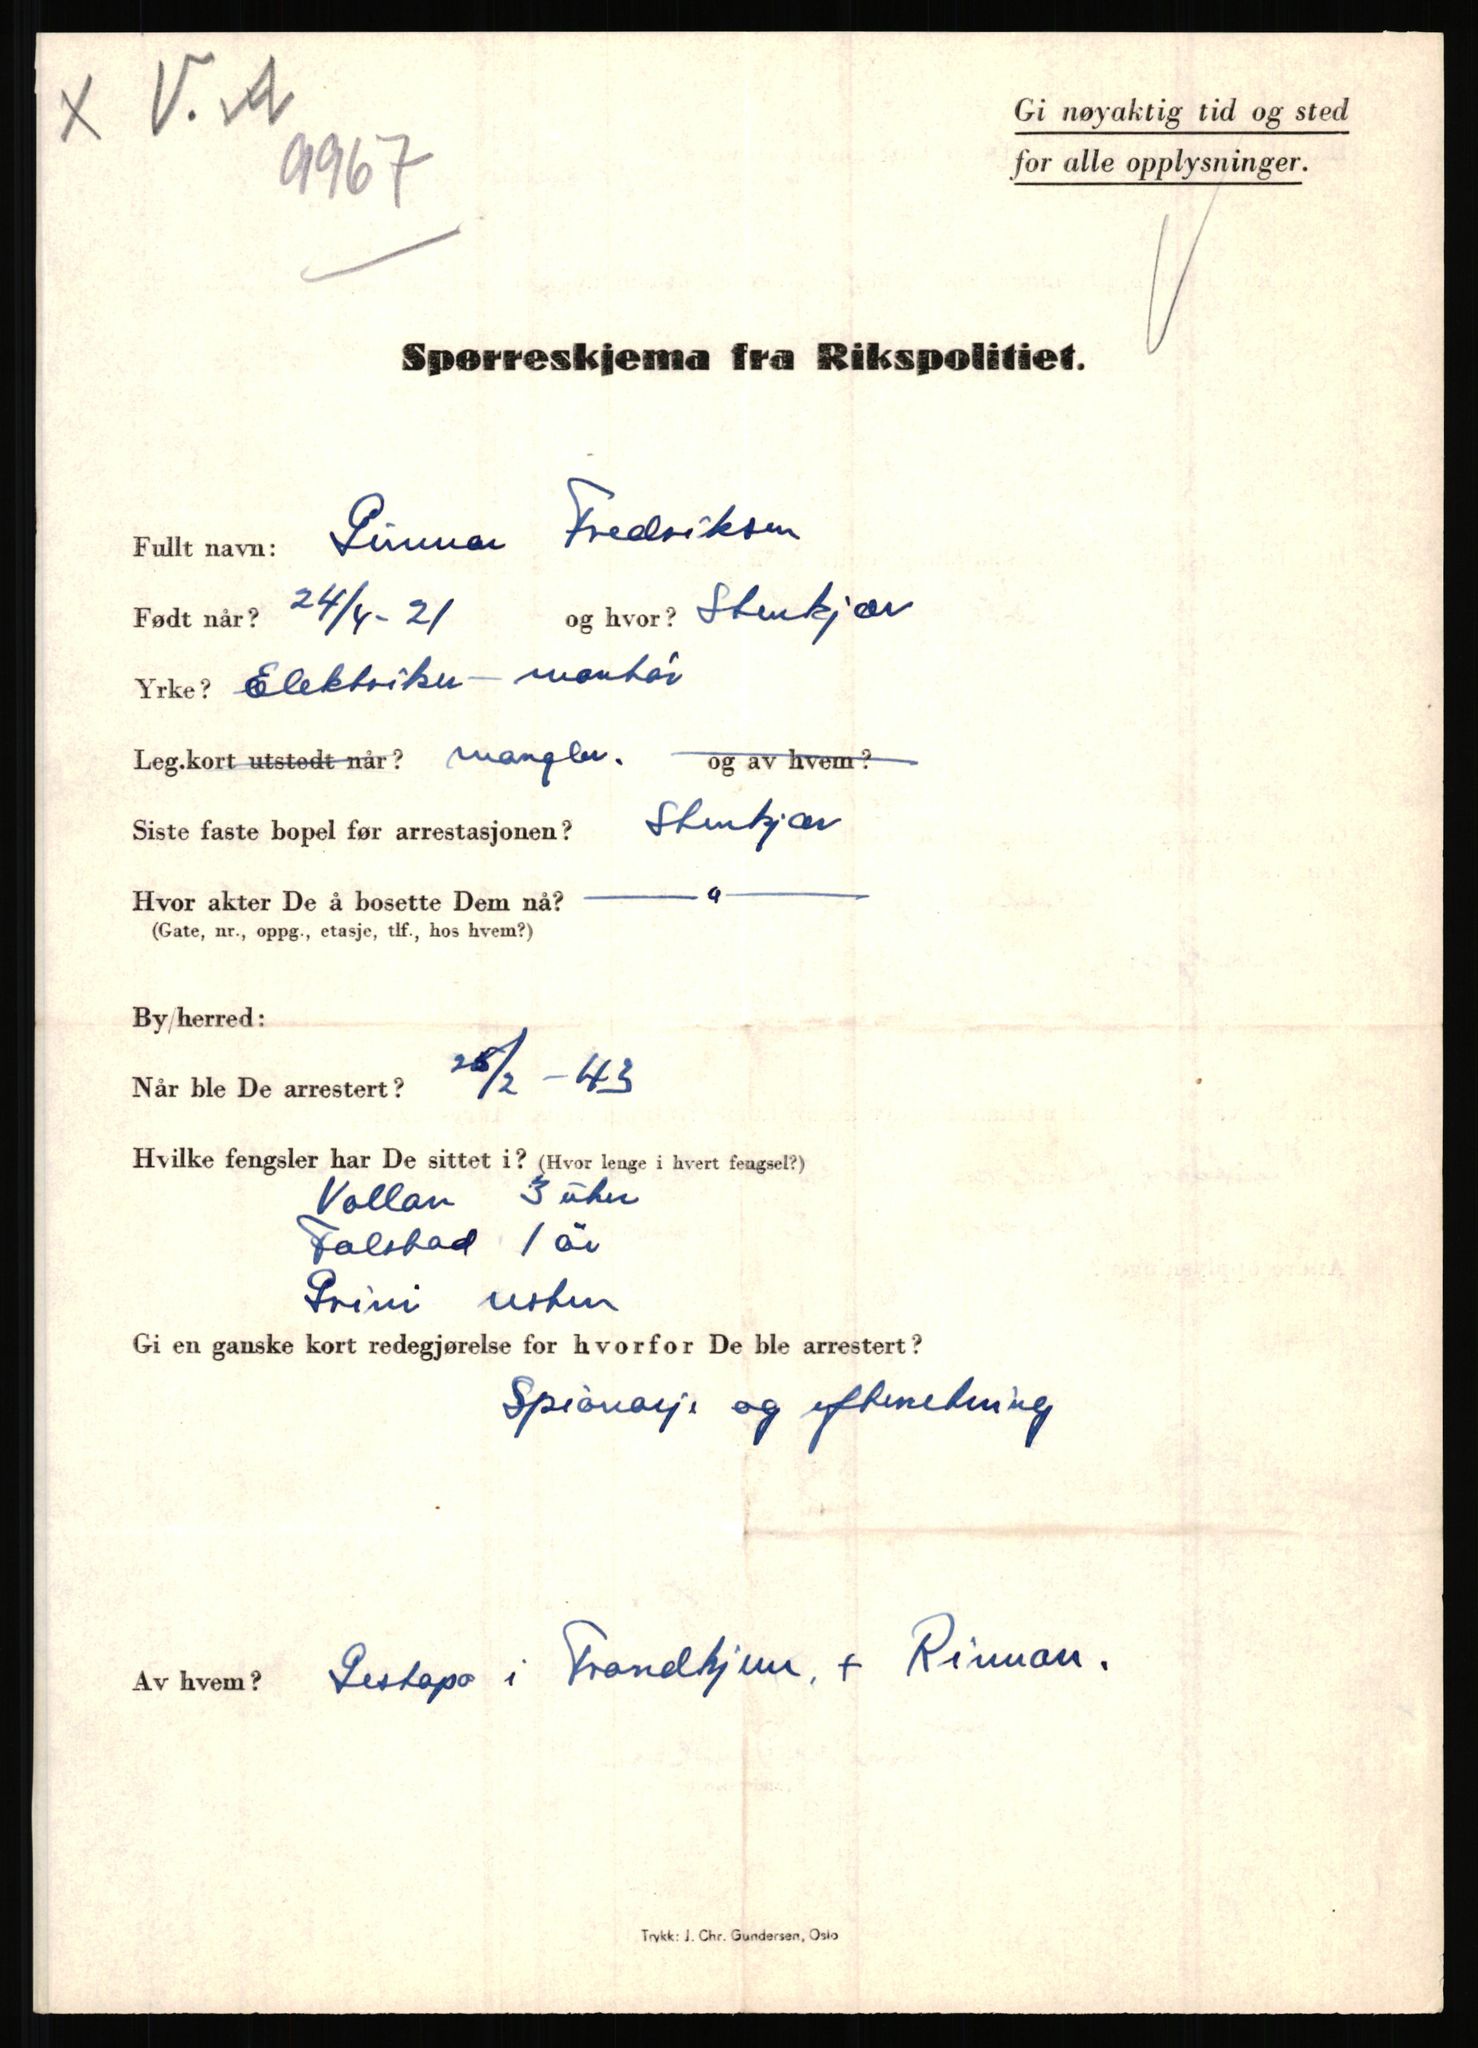 x V. A
9967
Gi nøyaktig tid og sted
for alle opplysninger.
Spørreskjema fra Rikspolitiet.
Fullt navn: Gunnar Fredriksen
Født når? 24/4-21 og hvor? Stenkjær
Yrke? Elektriker-montør
Leg.kort utstedt når? mangler. og av hvem?
Siste faste bopel før arrestasjonen? Stenkjær
Hvor akter De å bosette Dem nå? —— " ——
(Gate, nr., oppg., etasje, tlf., hos hvem?)
By/herred:
Når ble De arrestert? 28/2-43
Hvilke fengsler har De sittet i? (Hvor lenge i hvert fengsel?)
Vollan 3 uker
Falstad 1 år
Grini resten
Gi en ganske kort redegjørelse for hvorfor De ble arrestert?
Spionasje og efterretning
Av hvem? Gestapo i Trondhjem, + Rinnan.
Trykk: J. Chr. Gundersen, Oslo